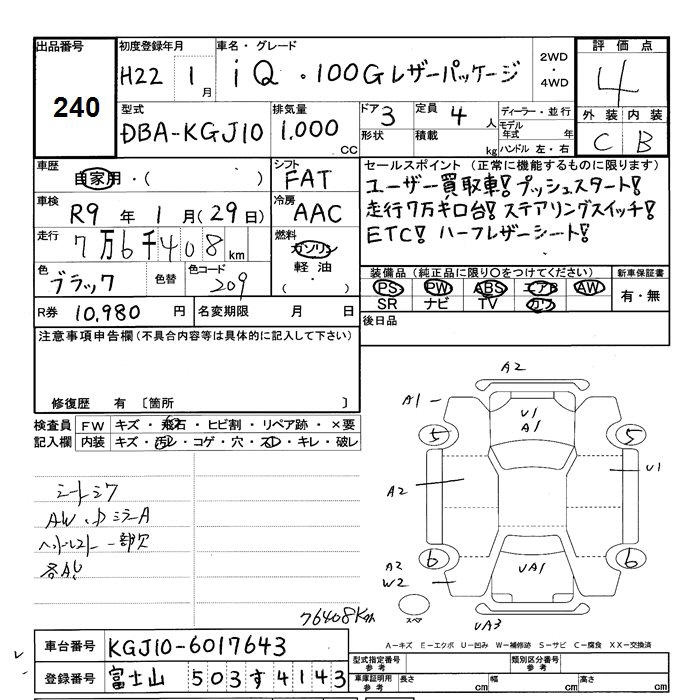 出品番号 初度登録年月 車名・グレード 2WD・4WD 評価点
240 H22 1月 iQ・100Gレザーパッケージ 4
型式 排気量 ドア 3 定員 4人 ディーラー・並行 外装 内装
DBA-KGJ10 1.000cc 形状 積載 kg モデル年式 年 ハンドル 左・右 C B
車歴 自家用・( ) シフト FAT セールスポイント (正常に機能するものに限ります)
車検 R9年1月(29日) 冷房 AAC ユーザー買取車!プッシュスタート!
走行 7万6千408km 燃料 ガソリン 軽油・( ) 走行7万キロ台!ステアリングスイッチ!
ETC!ハーフレザーシート!
色 ブラック 色替 色コード 209 装備品 (純正品に限り○をつけてください) 新車保証書
PS PW ABS エアB AW 有・無
R券 10,980円 名変期限 月 日 SR ナビ TV カワ
注意事項申告欄(不具合内容等は具体的に記入して下さい) 後日品
修復歴 有 〔箇所 〕
検査員 FW キズ・飛石・ヒビ割・リペア跡・×要
記入欄 内装 キズ・汚レ・コゲ・穴・スレ・キレ・破レ
シートシワ
AW、ドミラーA
ヘッドレスト一部欠
各AU
A2
A1
U1
A1
5 5
A2 U1
6 6
A2
W2
UA1
スペア
UA3
76408Km
A-キズ E-エクボ U-凹み W-補修跡 S-サビ C-腐食 XX-交換済
車台番号 KGJ10-6017643 型式指定番号 参考 類別区分番号 参考
登録番号 富士山 503す4143 車庫証明用 参考 長さ cm 幅 cm 高さ cm